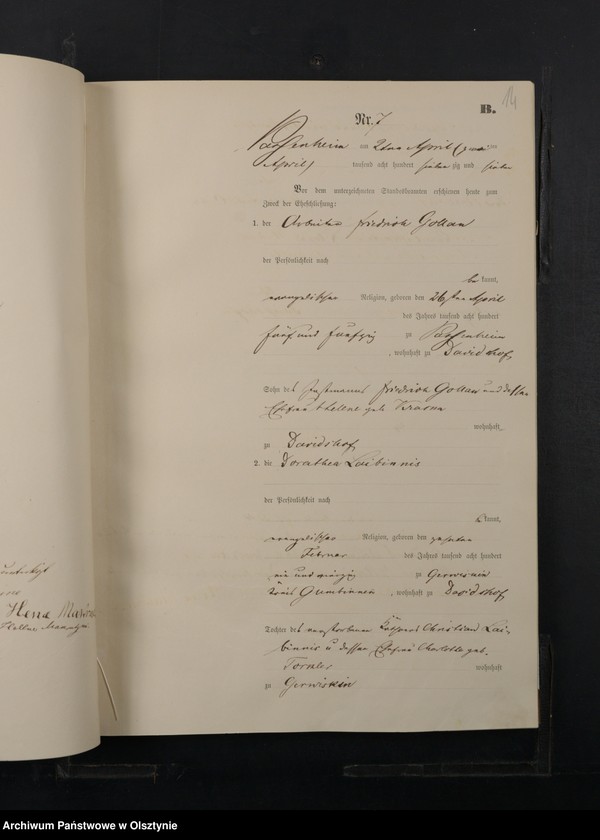 B. 14
Nr. 7
Passenheim am 2ten April (zwei ten
April) tausend acht hundert sieben zig und sieben
Vor dem unterzeichneten Standesbeamten erschienen heute zum
Zweck der Eheschließung:
1. der Arbeiter Friedrich Gollan
der Persönlichkeit nach
be kannt,
evangelischer Religion, geboren den 26sten April
des Jahres tausend acht hundert
fünf und funfzig zu Passenheim
, wohnhaft zu Davidshof
Sohn des Instmanns Friedrich Gollan und dessen
Ehefrau Helene geb.
wohnhaft
zu Davidshof
2. die Dorothea Laibinnis
der Persönlichkeit nach
kannt,
evangelischer Religion, geboren den zehnten
Februar des Jahres tausend acht hundert
und vierzig zu
Kreis Gumbinnen, wohnhaft zu Davidshof
Tochter des verstorbenen Christian Lai-
binnis u dessen Ehefrau Charlotte geb.
wohnhaft
zu
Archiwum Państwowe w Olsztynie